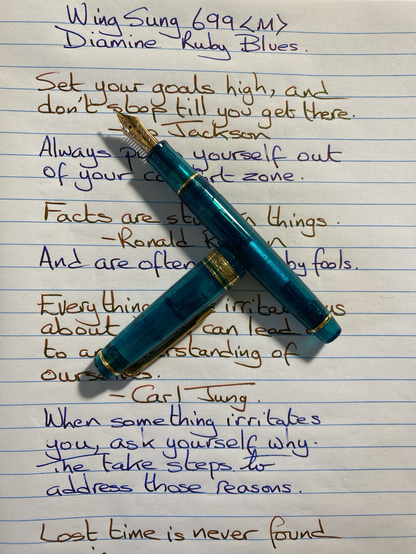 Wing Sung 699 <M>
Diamine Ruby Blues.
Set your goals high, and
don't stop till you get there.
Jackson
Always yourself out
of your zone.
Facts are things.
- Ronald
And are often by fools.
Everything
about can lead
to
- Carl Jung.
When something irritates
you, ask yourself why.
The take steps to
address those reasons.
Lost time is never found